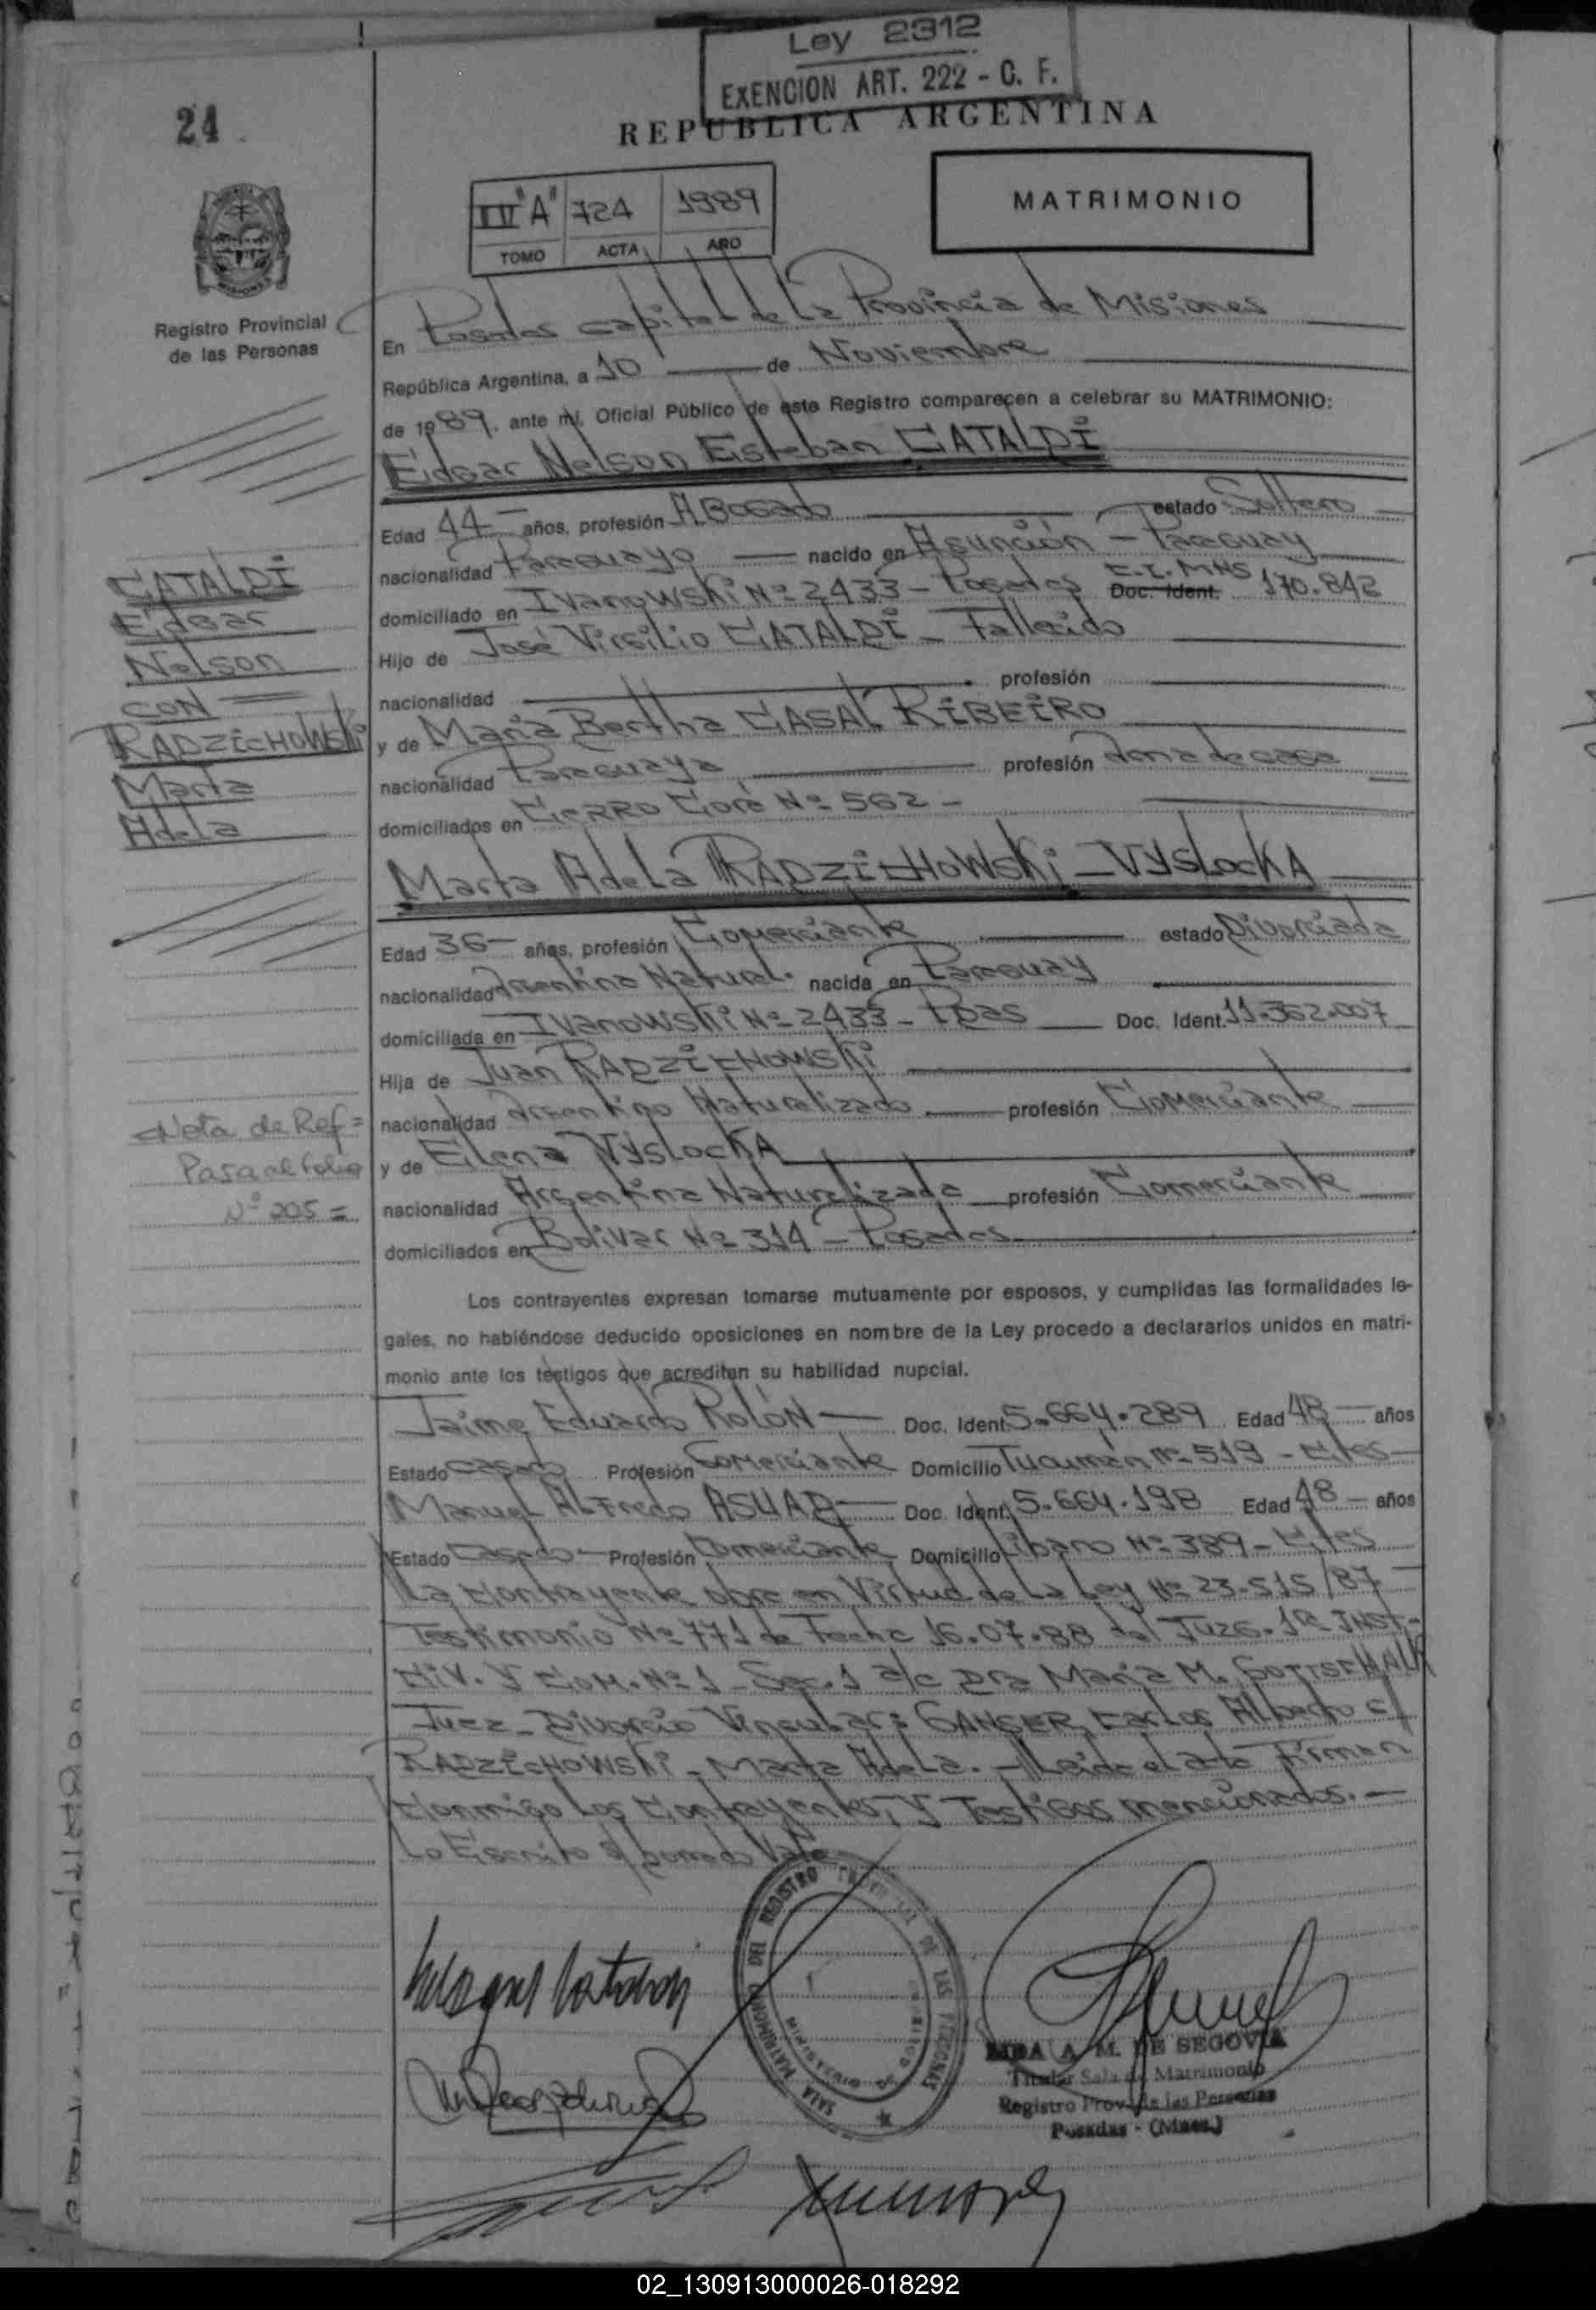 Ley 2312
EXENCION ART. 222 - C. F.
24
REPUBLICA ARGENTINA
III "A" 724 1989
TOMO ACTA AÑO
MATRIMONIO
Registro Provincial
de las Personas
En Posadas capital de la Provincia de Misiones
República Argentina, a 10 de Noviembre
de 1989, ante mí, Oficial Público de este Registro comparecen a celebrar su MATRIMONIO:
Edgar Nelson Esteban CATALDI
Edad 44 años, profesión Abogado estado Soltero
nacionalidad Paraguayo nacido en Asunción - Paraguay
domiciliado en Ivanowski Nº 2433 - Posadas C.I. MNS Doc. Ident. 170.842
Hijo de José Virgilio CATALDI - Fallecido
nacionalidad profesión
y de María Bertha CASAL RIBEIRO
nacionalidad Paraguaya profesión Ama de casa
domiciliados en Cerro Corá Nº 562 -
CATALDI
Edgar
Nelson
CON
RADZICHOWSKi
Marta
Adela
Marta Adela RADZICHOWSKi - VYSLocKA
Edad 36 años, profesión Comerciante estado Divorciada
nacionalidad Argentina Natural. nacida en Paraguay
domiciliada en Ivanowski Nº 2433 - Pdas Doc. Ident. 11.362.007
Hija de Juan RADZICHOWSKi
nacionalidad Argentino Naturalizado profesión Comerciante
y de Elena VYSLocKA
nacionalidad Argentina Naturalizada profesión Comerciante
domiciliados en Bolivar Nº 314 - Posadas
Nota de Ref =
Pasa al folio
Nº 205 =
Los contrayentes expresan tomarse mutuamente por esposos, y cumplidas las formalidades le-
gales, no habiéndose deducido oposiciones en nombre de la Ley procedo a declararlos unidos en matri-
monio ante los testigos que acreditan su habilidad nupcial.
Jaime Eduardo ROLÓN Doc. Ident. 5.664.289 Edad 48 años
Estado Casado Profesión Comerciante Domicilio Tucumán Nº 519 - Ctes
Manuel Alfredo ASUAD Doc. Ident. 5.664.198 Edad 48 años
Estado Casado Profesión Comerciante Domicilio Libano Nº 389 - Ctes
La Contrayente obra en Virtud de La Ley Nº 23.515/87
Testimonio Nº 771 de Fecha 16.07.88 del Juzg. 1ª INST.
CiV. Y COM. Nº 1 - Sec. 1 a/c Dra Maria M. GOTTSCHALK
Juez - Divorcio Vincular: GANGER, Carlos Alberto c/
RADZICHOWSKi - Marta Adela. - Leida el acta Firman
Conmigo Los Contrayentes, y Testigos mencionados. -
Lo Escrito s/ borrado Vale
SALA MATRIMONIO DEL REGISTRO PROVINCIAL DE LAS PERSONAS
A. M. DE SEGOVIA
Titular Sala de Matrimonio
Registro Prov. de las Personas
Posadas - (Mnes.)
02_130913000026-018292